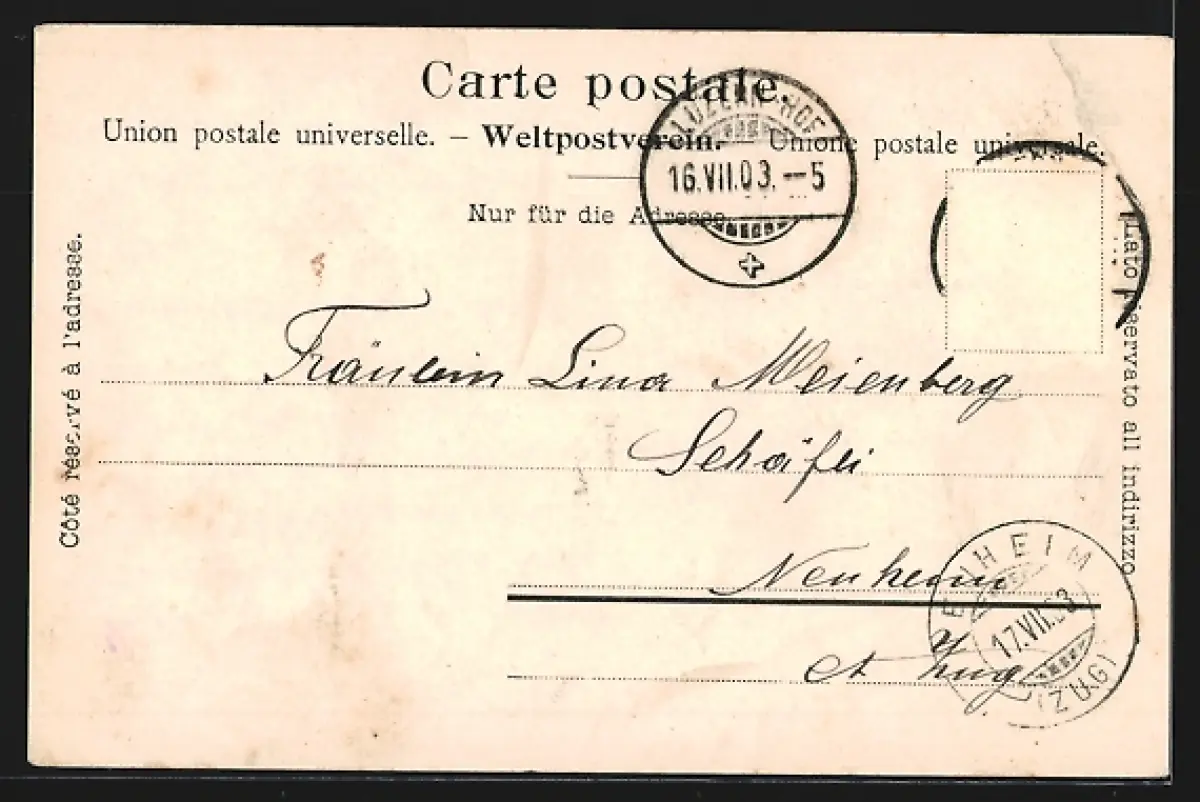 Carte postale.
Union postale universelle. – Weltpostverein. – Unione postale universale.
LUZERN-HOF
16.VII.03.–5
Nur für die Adresse.
Côté réservé à l'adresse.
Lato riservato all indirizzo
Fräulein Lina Meienberg
Schäfli
Neuheim
Ct Zug
NEUHEIM
17.VII.03
(ZUG)